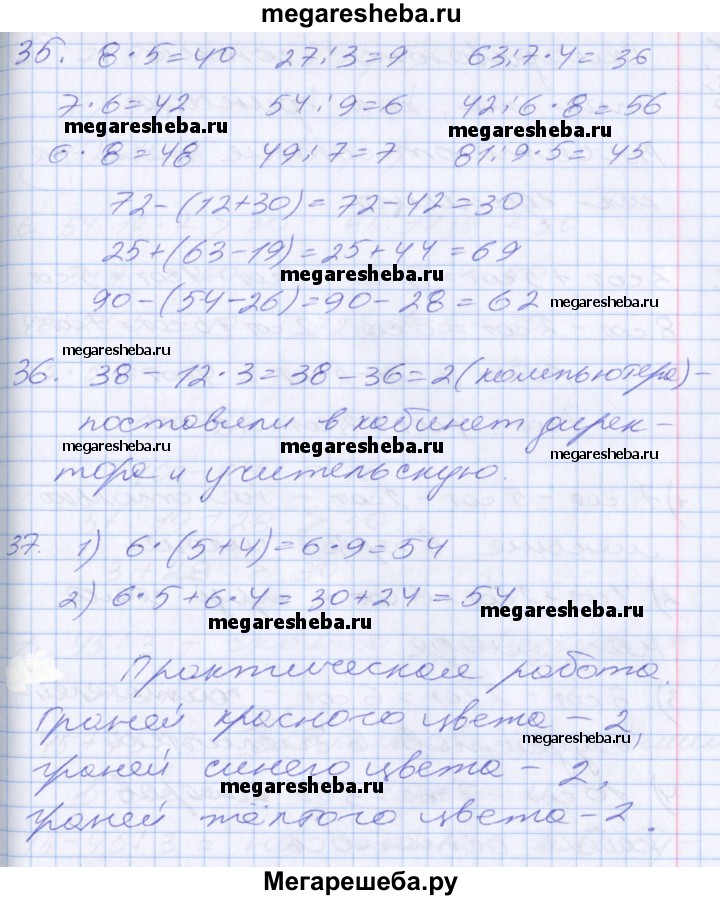 megaresheba.ru
35. 8·5=40 27:3=9 63:7·4=36
7·6=42 54:9=6 42:6·8=56
megaresheba.ru megaresheba.ru
6·8=48 49:7=7 81:9·5=45
72-(12+30)=72-42=30
25+(63-19)=25+44=69
megaresheba.ru
90-(54-26)=90-28=62 megaresheba.ru
megaresheba.ru
36. 38-12·3=38-36=2(компьютера)-
поставили в кабинет дирек-
megaresheba.ru
тора и учительскую.
37. 1) 6·(5+4)=6·9=54
2) 6·5+6·4=30+24=54
megaresheba.ru megaresheba.ru
Практическая работа.
Граней красного цвета - 2,
megaresheba.ru
граней синего цвета - 2,
megaresheba.ru
граней жёлтого цвета - 2.
Мегарешеба.ру